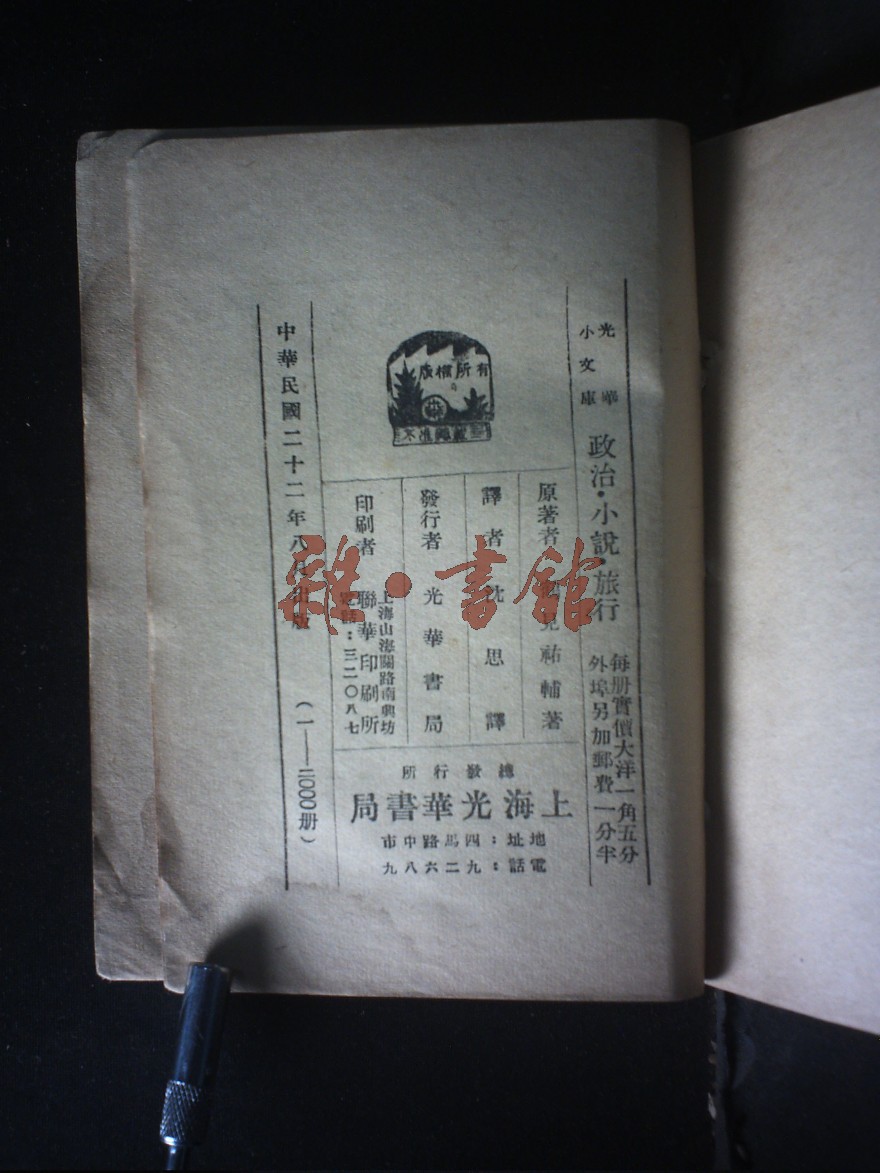 光華
小文庫
政治·小說·旅行
每册實價大洋一角五分
外埠另加郵費一分半
版權所有
不准翻印
原著者 見祐輔著
譯者 沈思譯
發行者 光華書局
印刷者 聯華印刷所
上海山海關路南興坊
電話：三二〇八七
總發行所
上海光華書局
地址：四馬路中市
電話：九二六八九
中華民國二十二年八月出版
（一——二000册）
雜·書館